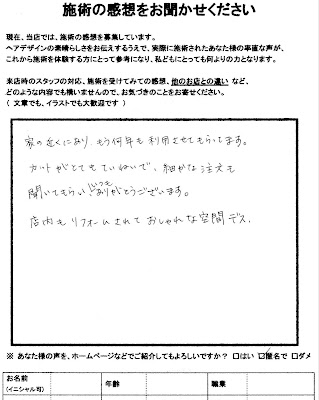 施術の感想をお聞かせください
現在、当店では、施術の感想を募集しています。
ヘアデザインの素晴らしさをお伝えするうえで、実際に施術されたあなた様の率直な声が、
これから施術を体験する方にとって参考になり、私どもにとっても何よりの力となります。
来店時のスタッフの対応、施術を受けてみての感想、他のお店との違い など、
どのような内容でも構いませんので、お気づきのことをお寄せください。
（ 文章でも、イラストでも大歓迎です ）
家の近くにあり、もう何年も利用させてもらってます。
カットがとてもていねいで、細かな注文も
聞いてもらい いつもありがとうございます。
店内もリフォームされておしゃれな空間デス。
※ あなた様の声を、ホームページなどでご紹介してもよろしいですか？ □はい ☑匿名で □ダメ
お名前
（イニシャル可）
年齢
職業